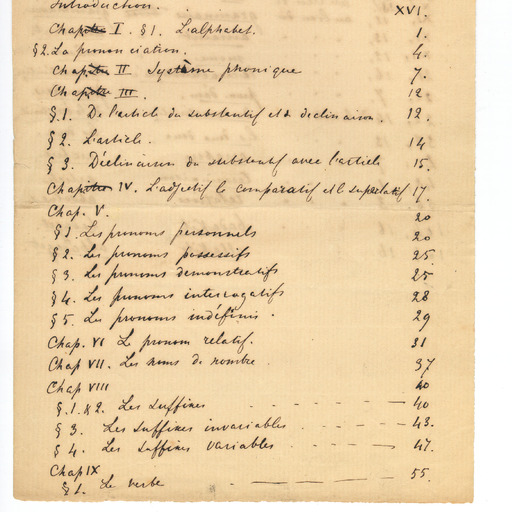 Introduction. XVI.
Chapitre I. §1. L'alphabet. 1.
§2. La prononciation. 4.
Chapitre II Système phonique 7.
Chapitre III. 12
§.1. De l'article du substantif et de declinaison. 12.
§ 2. L'article. 14
§ 3. Déclinaison du substantif avec l'article 15.
Chapitre IV. L'adjectif le comparatif et le superlatif 17.
Chap. V. 20
§1. Les pronoms personnels 20
§2. Les pronoms possessifs 25.
§3. Les pronoms demonstratifs 25
§4. Les pronoms interrogatifs 28
§5. Les pronoms indéfinis. 29
Chap. VI Le pronom relatif. 31
Chap VII. Les noms de nombre. 37
Chap VIII 40
§.1.&2. Les suffixes 40
§ 3. Les suffixes invariables 43.
§ 4. Les suffixes variables 47.
Chap IX
§1. Le verbe 55.